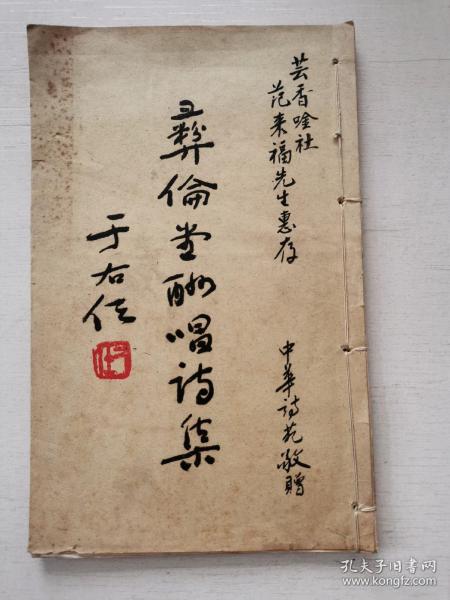 芸香吟社
范来福先生惠存
中華詩苑敬贈
彛倫堂酬唱詩集
于右任
孔夫子旧书网
www.kongfz.com